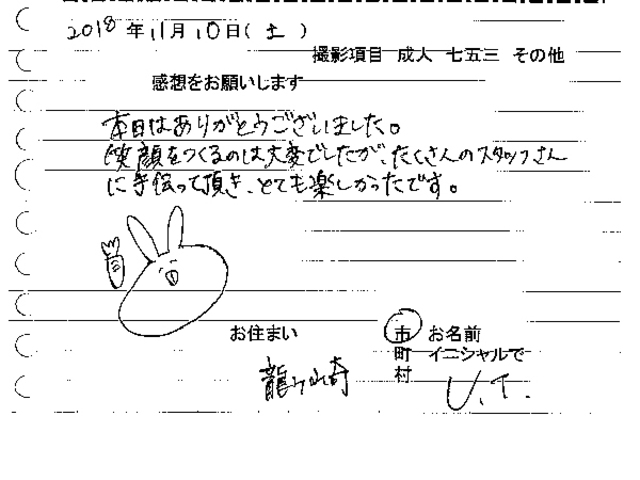 2018年11月10日(土)
撮影項目 成人 七五三 その他
感想をお願いします
本日はありがとうございました。
笑顔をつくるのは大変でしたが、たくさんのスタッフさん
に手伝って頂き、とても楽しかったです。
お住まい 市 お名前
町 イニシャルで
龍ヶ崎 村 U.T.